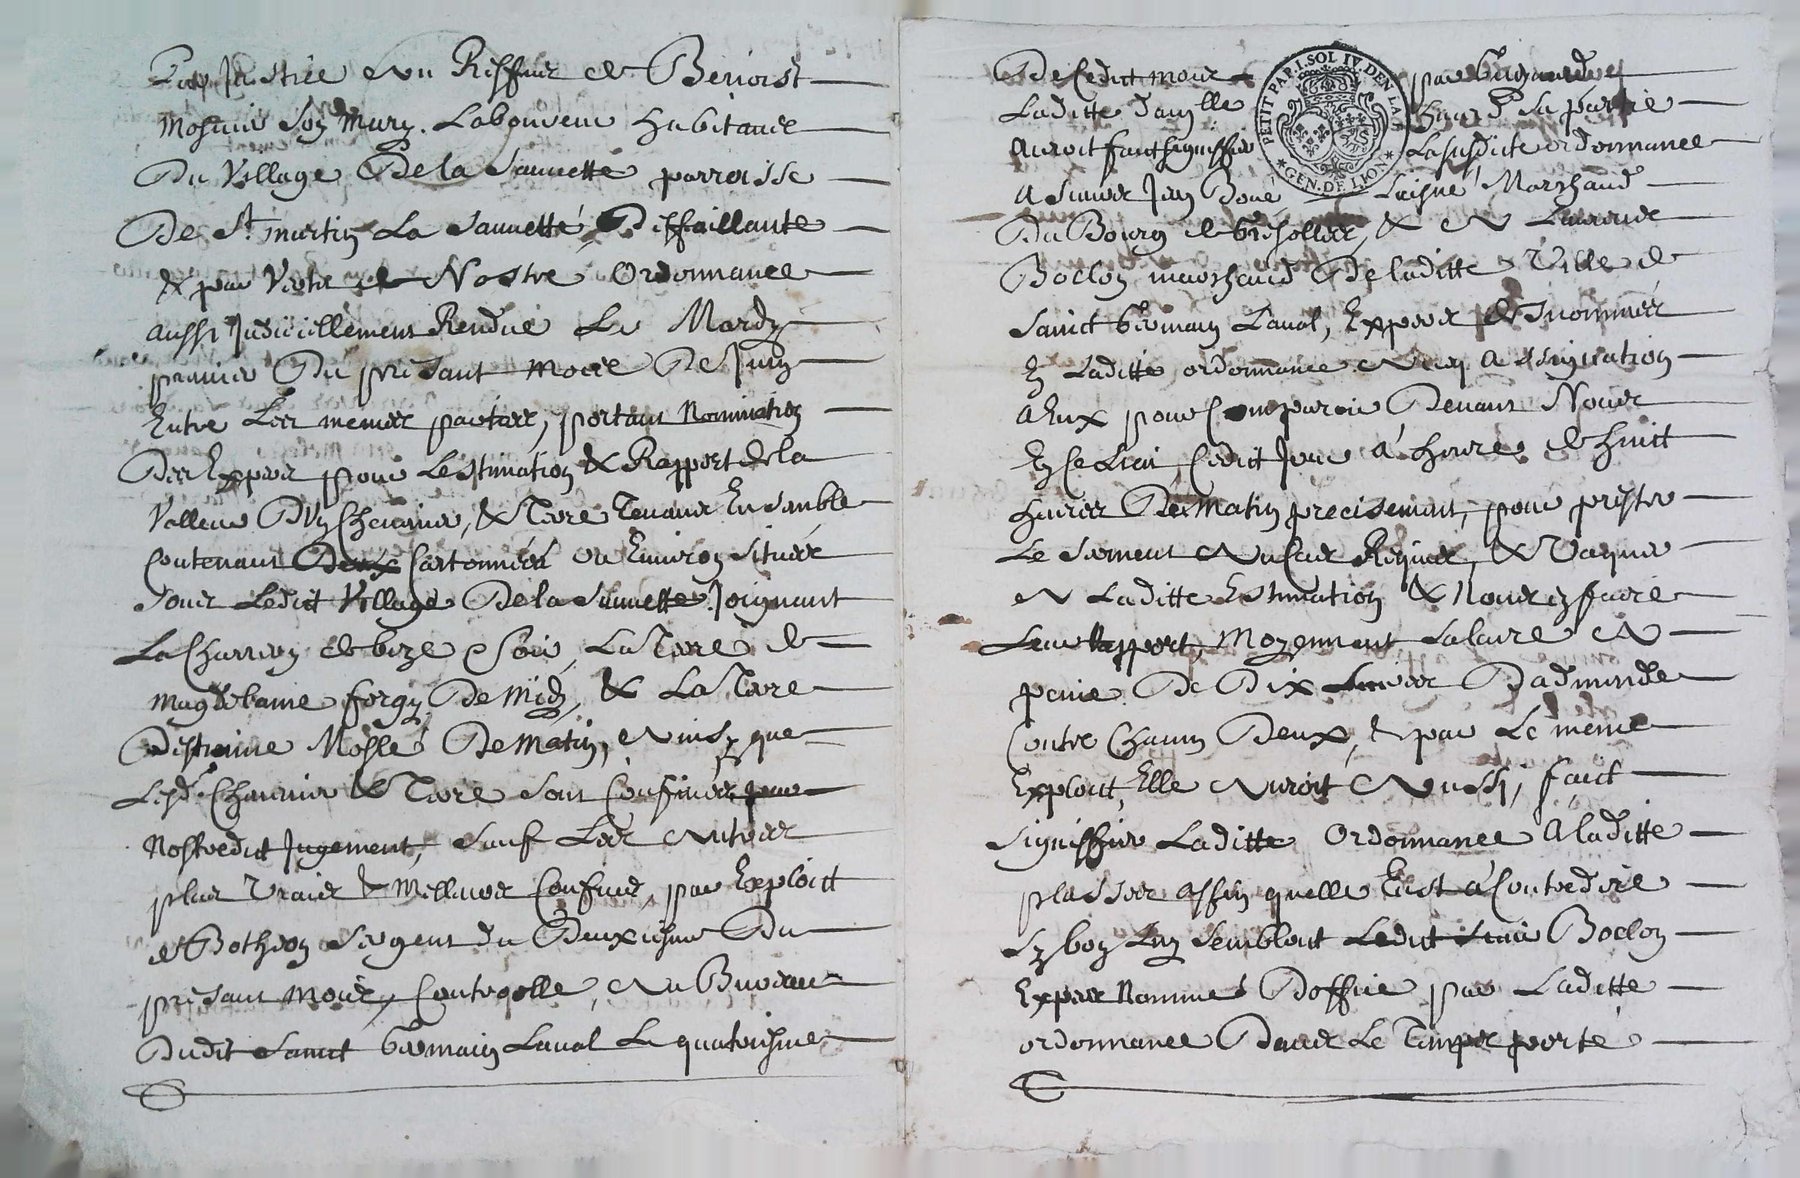 Par Justice Au Reffus de Benoist
mosnier Son Mary. Laboureur habitant
Du Village De la Sauvette parroisse
De St martin La Sauvetté, Deffaillante
& par Vertu de Nostre Ordonnance
aussi Judiciellement Rendue Le Mardy
premier Du présant mois De Juin
Entre Les mesmes parties, portant Nomination
Des Expers pour Lestimation & Rapport de la
Valleur D'Un Chenevier, & Terre Tenant Ensemble
Contenant Deux Cartonnées ou Environ Situés
Sous Ledit Village De la Sauvette Joignant
La Charriere de bize & Soir, La Terre de
magdelaine forgy De midy, & La Terre
Destienne Moslé De Matin, Ainsy que
Lesd. Chenevier & Terre Sont Confinés par
Nostredit Jugement, Sauf Les Autres
plus Vrais & Meilleurs Confins, par Exploict
de Botheon Sergent du Deuxiesme Du
présant mois, Contrerolle, Au Bureau
Dudit Sainct Germain Laval Le quatriesme
De Cedit mois par
PETIT PAP. 1. SOL IV. DEN LA F.
GEN. DE LION
Laditte Sa partie
auroit faict signiffier La susditte ordonnance
A Sieur Jean Laisné Marchand
Du Bourg de & A
marchand De laditte Ville de
Sainct Germain Laval, Expers & nommés
En Laditte ordonnance Avec Assignation
a Eux pour Comparoir Devant Nous
En Ce Lieu, Cedit Jour à heure de huict
heures De Matin precisement, pour prester
Le Serment Au Cas Requis, & Vaquer
A Laditte Estimation & Nous En faire
Leur Rapport, Moyennant Salaire A
peine De Dix Livres Dadmande
Contre Chacun Deux, & par Le meme
Exploict, Elle Auroit Aussi, faict
Signiffier Laditte Ordonnance A laditte
plasses Affin quelle Eust à Contredire
Sy bon Luy Sembloit Ledit Sieur
Expert Nommé Doffice par Laditte
ordonnance Dans Le Temps porté